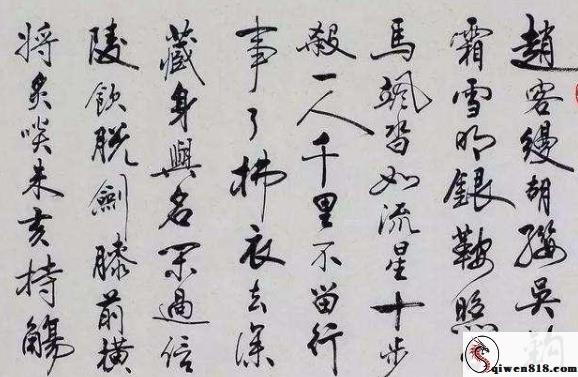 趙客縵胡纓吳鉤
霜雪明銀鞍照
馬颯沓如流星十步
殺一人千里不留行
事了拂衣去深
藏身與名閑過信
陵飲脫劍膝前橫
將炙啖朱亥持觴
qiwen818.com